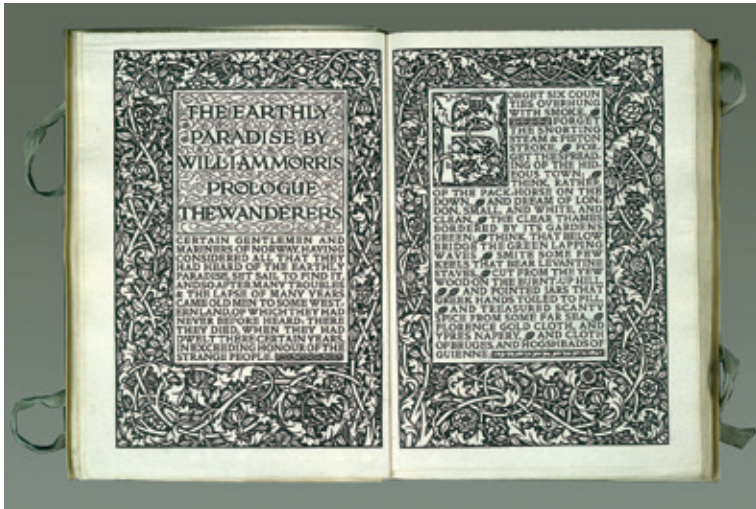 THE EARTHLY
PARADISE BY
WILLIAM MORRIS
PROLOGUE
THE WANDERERS
CERTAIN GENTLEMEN AND
MARINERS OF NORWAY, HAVING
CONSIDERED ALL THAT THEY
HAD HEARD OF THE EARTHLY
PARADISE, SET SAIL TO FIND IT,
AND SO AFTER MANY TROUBLES
& THE LAPSE OF MANY YEARS
CAME OLD MEN TO SOME WEST-
ERN LAND, OF WHICH THEY HAD
NEVER BEFORE HEARD: THERE
THEY DIED, WHEN THEY HAD
DWELT THERE CERTAIN YEARS,
IN EXCEEDING HONOUR OF THE
STRANGE PEOPLE.
FORGET SIX COUN
TIES OVERHUNG
WITH SMOKE,
FORGET
THE SNORTING
STEAM & PISTON
STROKE, FOR-
GET THE SPREAD-
ING OF THE HID-
EOUS TOWN;
THINK, RATHER,
OF THE PACK-HORSE ON THE
DOWN, AND DREAM OF LON-
DON, SMALL, AND WHITE, AND
CLEAN, THE CLEAR THAMES
BORDERED BY ITS GARDENS
GREEN; THINK, THAT BELOW
BRIDGE THE GREEN LAPPING
WAVES SMITE SOME FEW
KEELS THAT BEAR LEVANTINE
STAVES, CUT FROM THE YEW
WOOD ON THE BURNT-UP HILL,
AND POINTED JARS THAT
GREEK HANDS TOILED TO FILL,
AND TREASURED SCANTY
SPICE FROM SOME FAR SEA,
FLORENCE GOLD CLOTH, AND
YPRES NAPERY, AND CLOTH
OF BRUGES, AND HOGSHEADS OF
GUIENNE